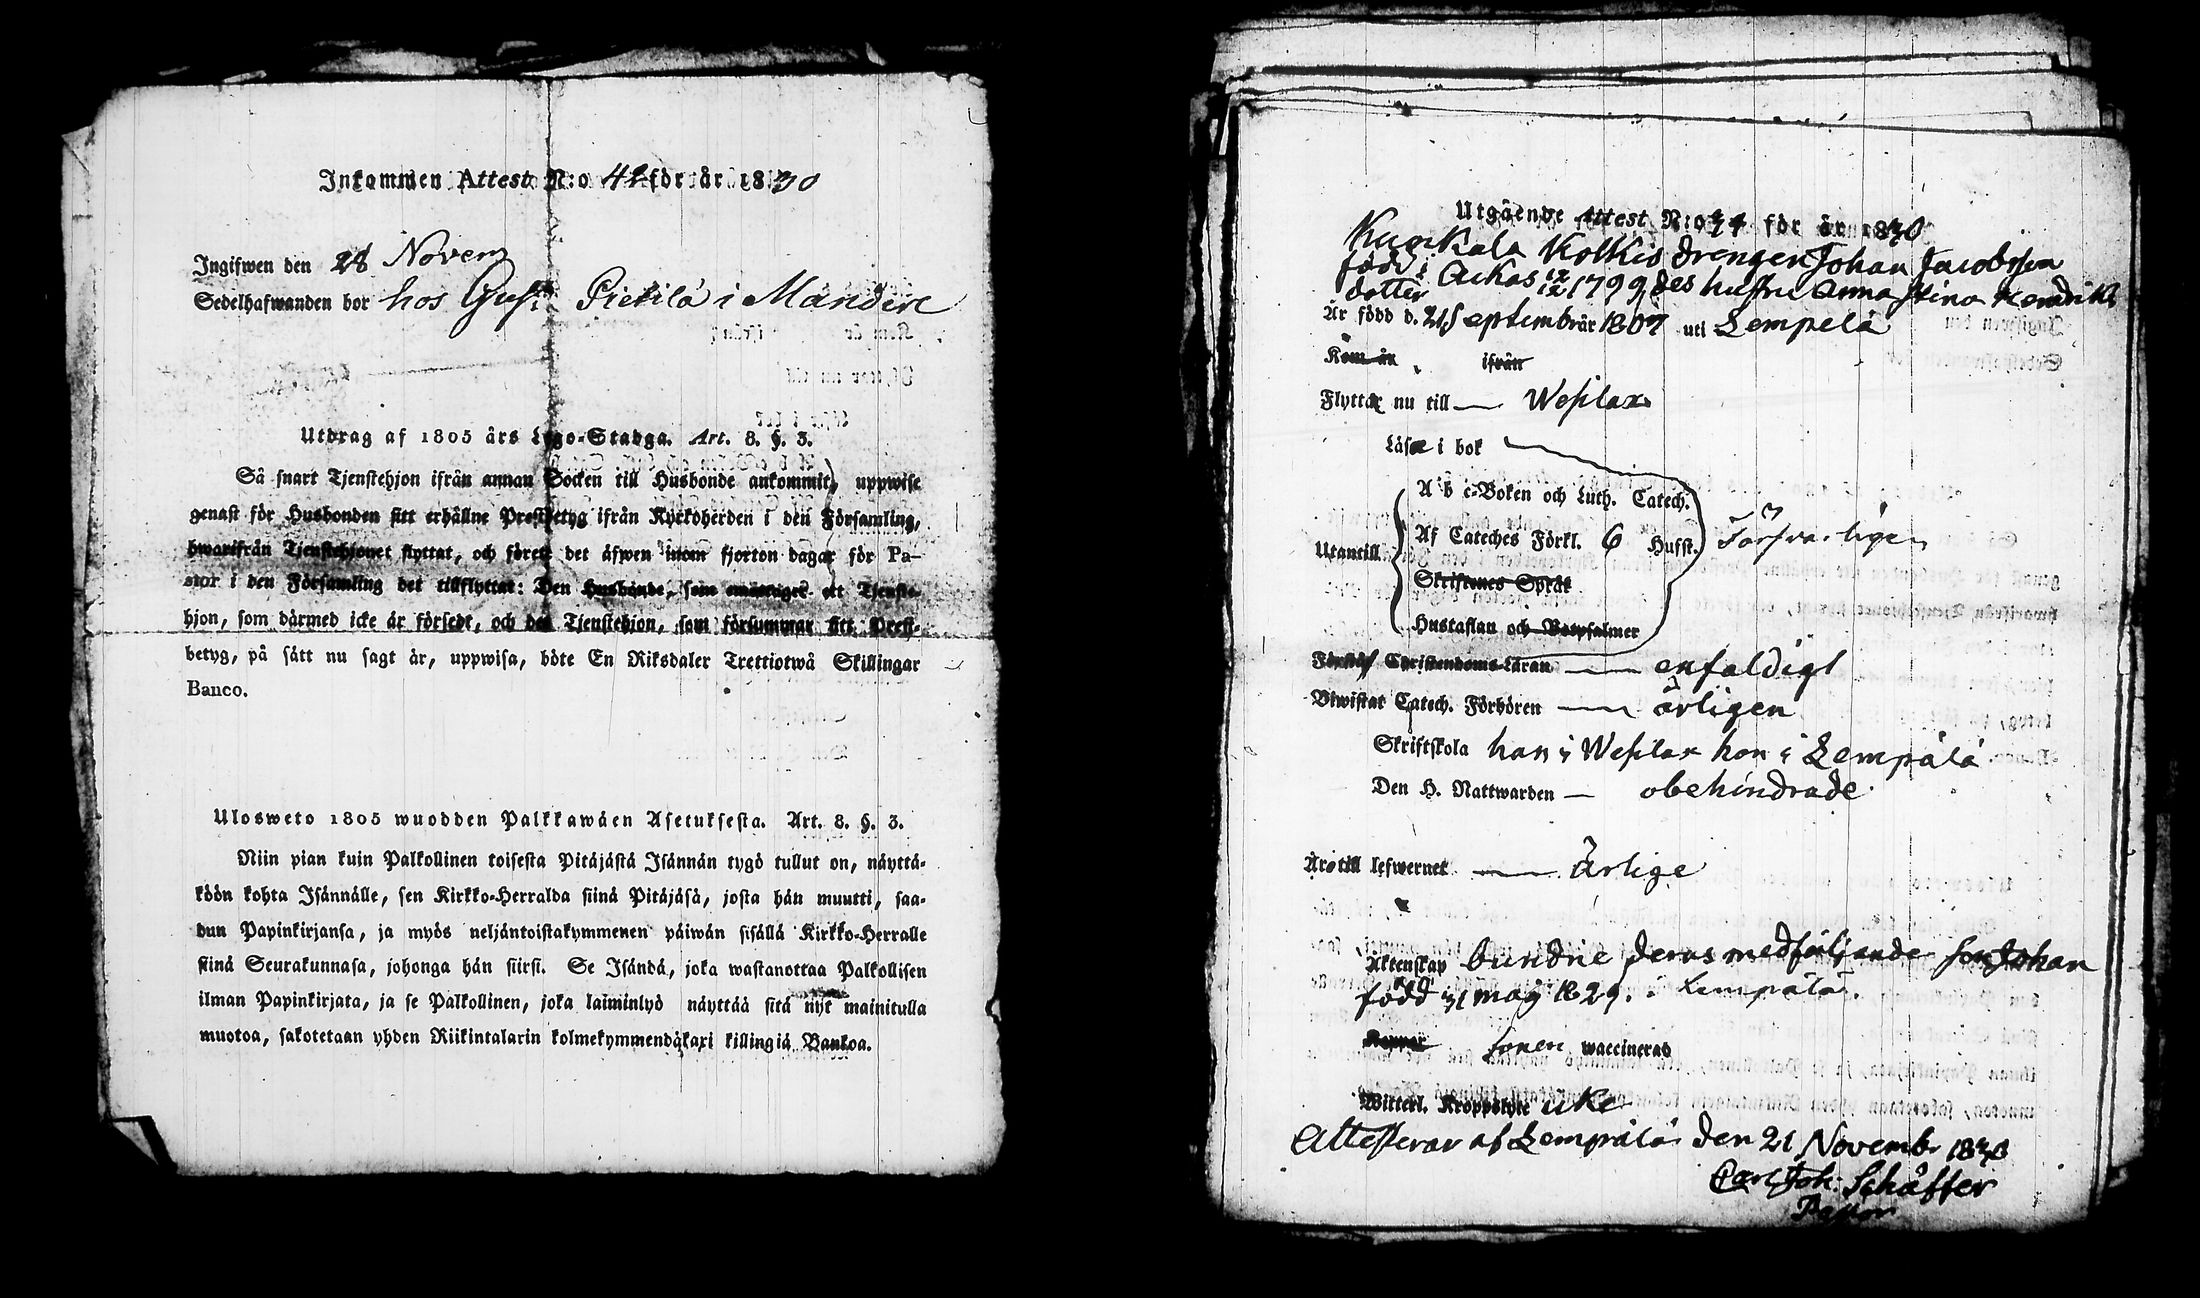 Inkommen Attest N:o 42 för år 1830
Ingifwen den 28 Novem
Sedelhafwanden bor hos Gust. Pietilä i Mandere
Utdrag af 1805 års Lego-Stadga. Art. 8. §. 3.
Så snart Tjenstehjon ifrån annan Socken till Husbonde ankommit, uppwise
genast för Husbonden sitt erhållne Prestbetyg ifrån Kyrkoherden i den Församling,
hwarifrån Tjenstehjonet flyttat, och förete det äfwen inom fjorton dagar för Pa-
stor i den Församling det tillflyttat: Den Husbonde, som emottager ett Tjenste-
hjon, som därmed icke är försedt, och det Tjenstehjon, som försummar sitt Prest-
betyg, på sätt nu sagt är, uppwisa, böte En Riksdaler Trettiotwå Skillingar
Banco.
Ulosweto 1805 wuodden Palkkawäen Asetuksesta. Art. 8. §. 3.
Niin pian kuin Palkollinen toisesta Pitäjästä Isännän tygö tullut on, näyttä-
köön kohta Isännälle, sen Kirkko-Herralda siinä Pitäjäsä, josta hän muutti, saa-
dun Papinkirjansa, ja myös neljäntoistakymmenen päiwän sisällä Kirkko-Herralle
siinä Seurakunnasa, johonga hän siirsi. Se Isändä, joka wastanottaa Palkollisen
ilman Papinkirjata, ja se Palkollinen, joka laiminlyö näyttää sitä nyt mainitulla
muotoa, sakotetaan yhden Riikintalarin kolmekymmendäkaxi killingiä Bankoa.
Utgående Attest N:o 34 för år 1830
Kuokkala Kolkis drengen Johan Jacobsson
född i Ackas 12/12 1799, des hustru Anna Stina Hendriks
dotter
Är född d. 21 September år 1807 uti Lempelä
Kom år ifrån
Flyttar nu till Wesilax
Läsa i bok
Utantill
A b c-Boken och Luth. Catech.
Af Cateches Förkl. 6 Husst. Försvarligen
Skriftenes Språk
Hustaflan och Botpsalmer
Förstår Christendoms-Läran enfaldigt
Biwistat Catech. Förhören årligen
Skriftskola han i Wesilax hon i Lempälä
Den H. Nattwarden obehindrade
Äro till lefwernet ärlige
Äktenskap bundne deras medföljande son Johan
född 31 maij 1829. i Lempälä.
Koppor sonen waccinerad
Witterl. Kroppslyte icke
Attesterar af Lempälä den 21 Novembr 1830
Carl Joh: Schäffer
Pastor